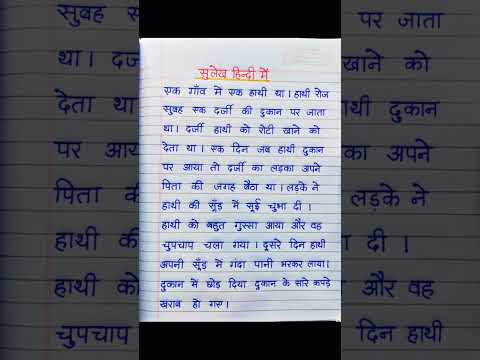 सुलेख हिन्दी में
एक गाँव में एक हाथी था। हाथी रोज
सुबह एक दर्जी की दुकान पर जाता
था। दर्जी हाथी को रोटी खाने को
देता था। एक दिन जब हाथी दुकान
पर आया तो दर्जी का लड़का अपने
पिता की जगह बैठा था। लड़के ने
हाथी की सूँड में सूई चुभा दी।
हाथी को बहुत गुस्सा आया और वह
चुपचाप चला गया। दूसरे दिन हाथी
अपनी सूँड में गंदा पानी भरकर लाया।
दुकान में छोड़ दिया दुकान के सारे कपड़े
खराब हो गए।